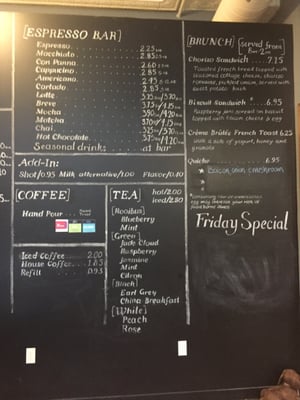 [ESPRESSO BAR]
Espresso 2.25
Macchiato 2.85
Con Panna 2.60
Cappucino 2.85
Americano 2.45
Cortado 2.85
Latte 3.15/3.70
Breve 3.75/4.15
Mocha 3.90/4.20
Matcha 3.70/4.15
Chai 3.75/
Hot Chocolate 3.75/4.20
Seasonal drinks at bar
Add-In:
Shot/0.95 Milk alternative/1.00 Flavor/0.80
[COFFEE]
Hand Pour
Iced Coffee 2.00
House Coffee 1.85
Refill 0.93
[TEA] hot/2.00
iced/2.80
[Rooibas]
Blueberry
Mint
[Green]
Jade Cloud
Raspberry
Jasmine
Mint
Citron
[Black]
Earl Grey
China Breakfast
[White]
Peach
Rose
[BRUNCH] (served from
Chorizo Sandwich 7.15
Toasted french bread topped with
seasoned cottage cheese, chorizo
romaine, pickled onion, served with
sweet potato hash
Biscuit Sandwich 6.95
Raspberry jam spread on biscuit
topped with bacon cheese & egg
Crème Brûlée French Toast 6.25
with a side of yogurt, honey and
granola
Quiche 6.95
Bacon, onion & mushroom
Friday Special